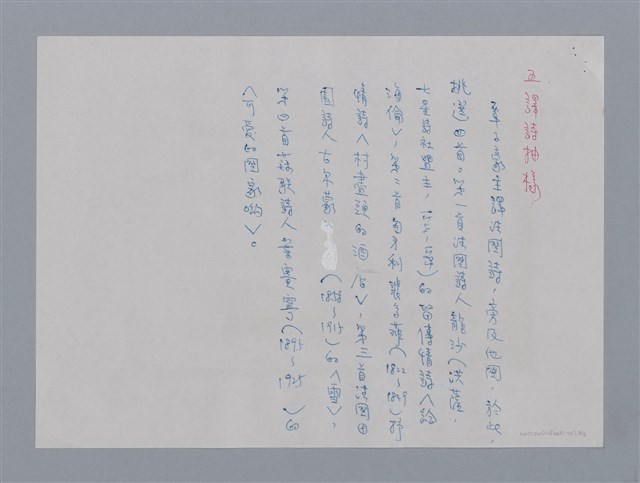 五 譯詩抽樣
覃子豪主譯法國詩,旁及他國,於此,
挑選四首。第一首法國詩人龍沙(洪薩,
七星詩社盟主,)的留傳情詩〈給
海倫〉,第二首匈牙利裴多菲(1822~1849)抒
情詩〈村盡頭的酒店〉,第三首法國田
園詩人古尔蒙(1858~1915)的〈雪〉,
第四首蘇聯詩人葉賽寧(1895~1925)的
〈可愛的國家喲〉。